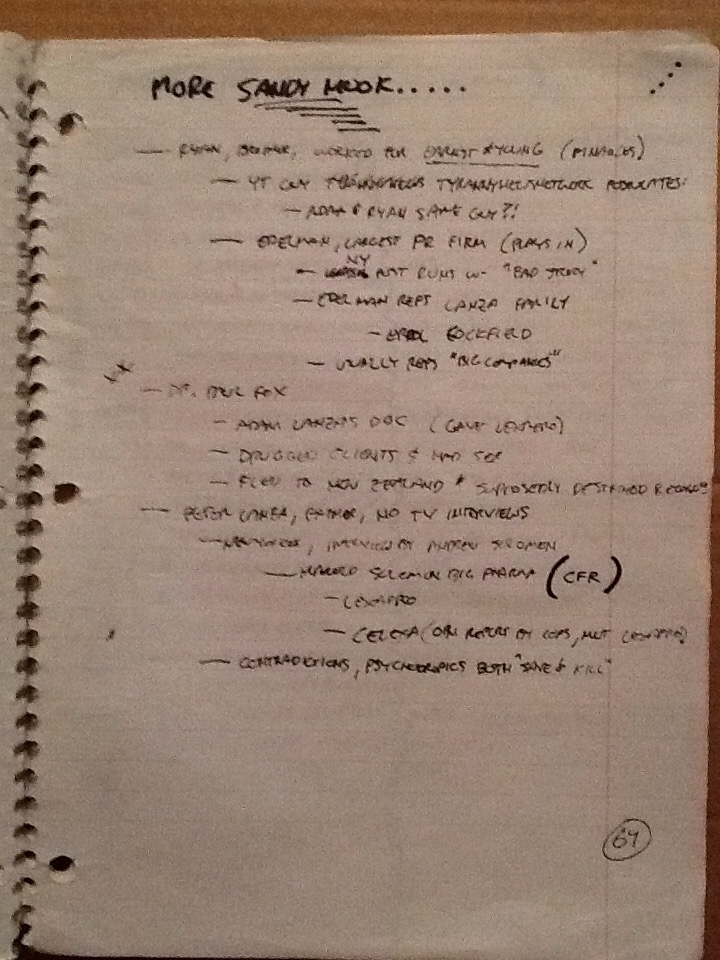 MORE SANDY HOOK.....
— RYAN, BROTHER, WORKED FOR ERNST & YOUNG (FINANCES)
— YT GUY TYRANNYNEWSNETWORK POSTULATES:
— ADAM & RYAN SAME GUY?!
— EDELMAN, LARGEST PR FIRM (PLAYS IN)
— NY POST RUNS W- "BAD STORY"
— EDELMAN REPS LANZA FAMILY
— ERROL COCKFIELD
— USUALLY REPS "BIG COMPANIES"
— DR. PAUL FOX
— ADAM LANZA'S DOC (GAVE LEXAPRO)
— DRUGGED CLIENTS & HAD SEX
— FLED TO NEW ZEALAND * SUPPOSETLY DESTROYED RECORDS
— PETER LANZA, FATHER, NO TV INTERVIEWS
— INTERVIEW BY ANDREW SOLOMON
— HOWARD SOLOMON BIG PHARMA (CFR)
— LEXAPRO
— CELEXA (ON REPORT BY COPS, NOT LEXAPRO)
— CONTRADICTIONS, PSYCHOTROPICS BOTH "SAVE & KILL"
64